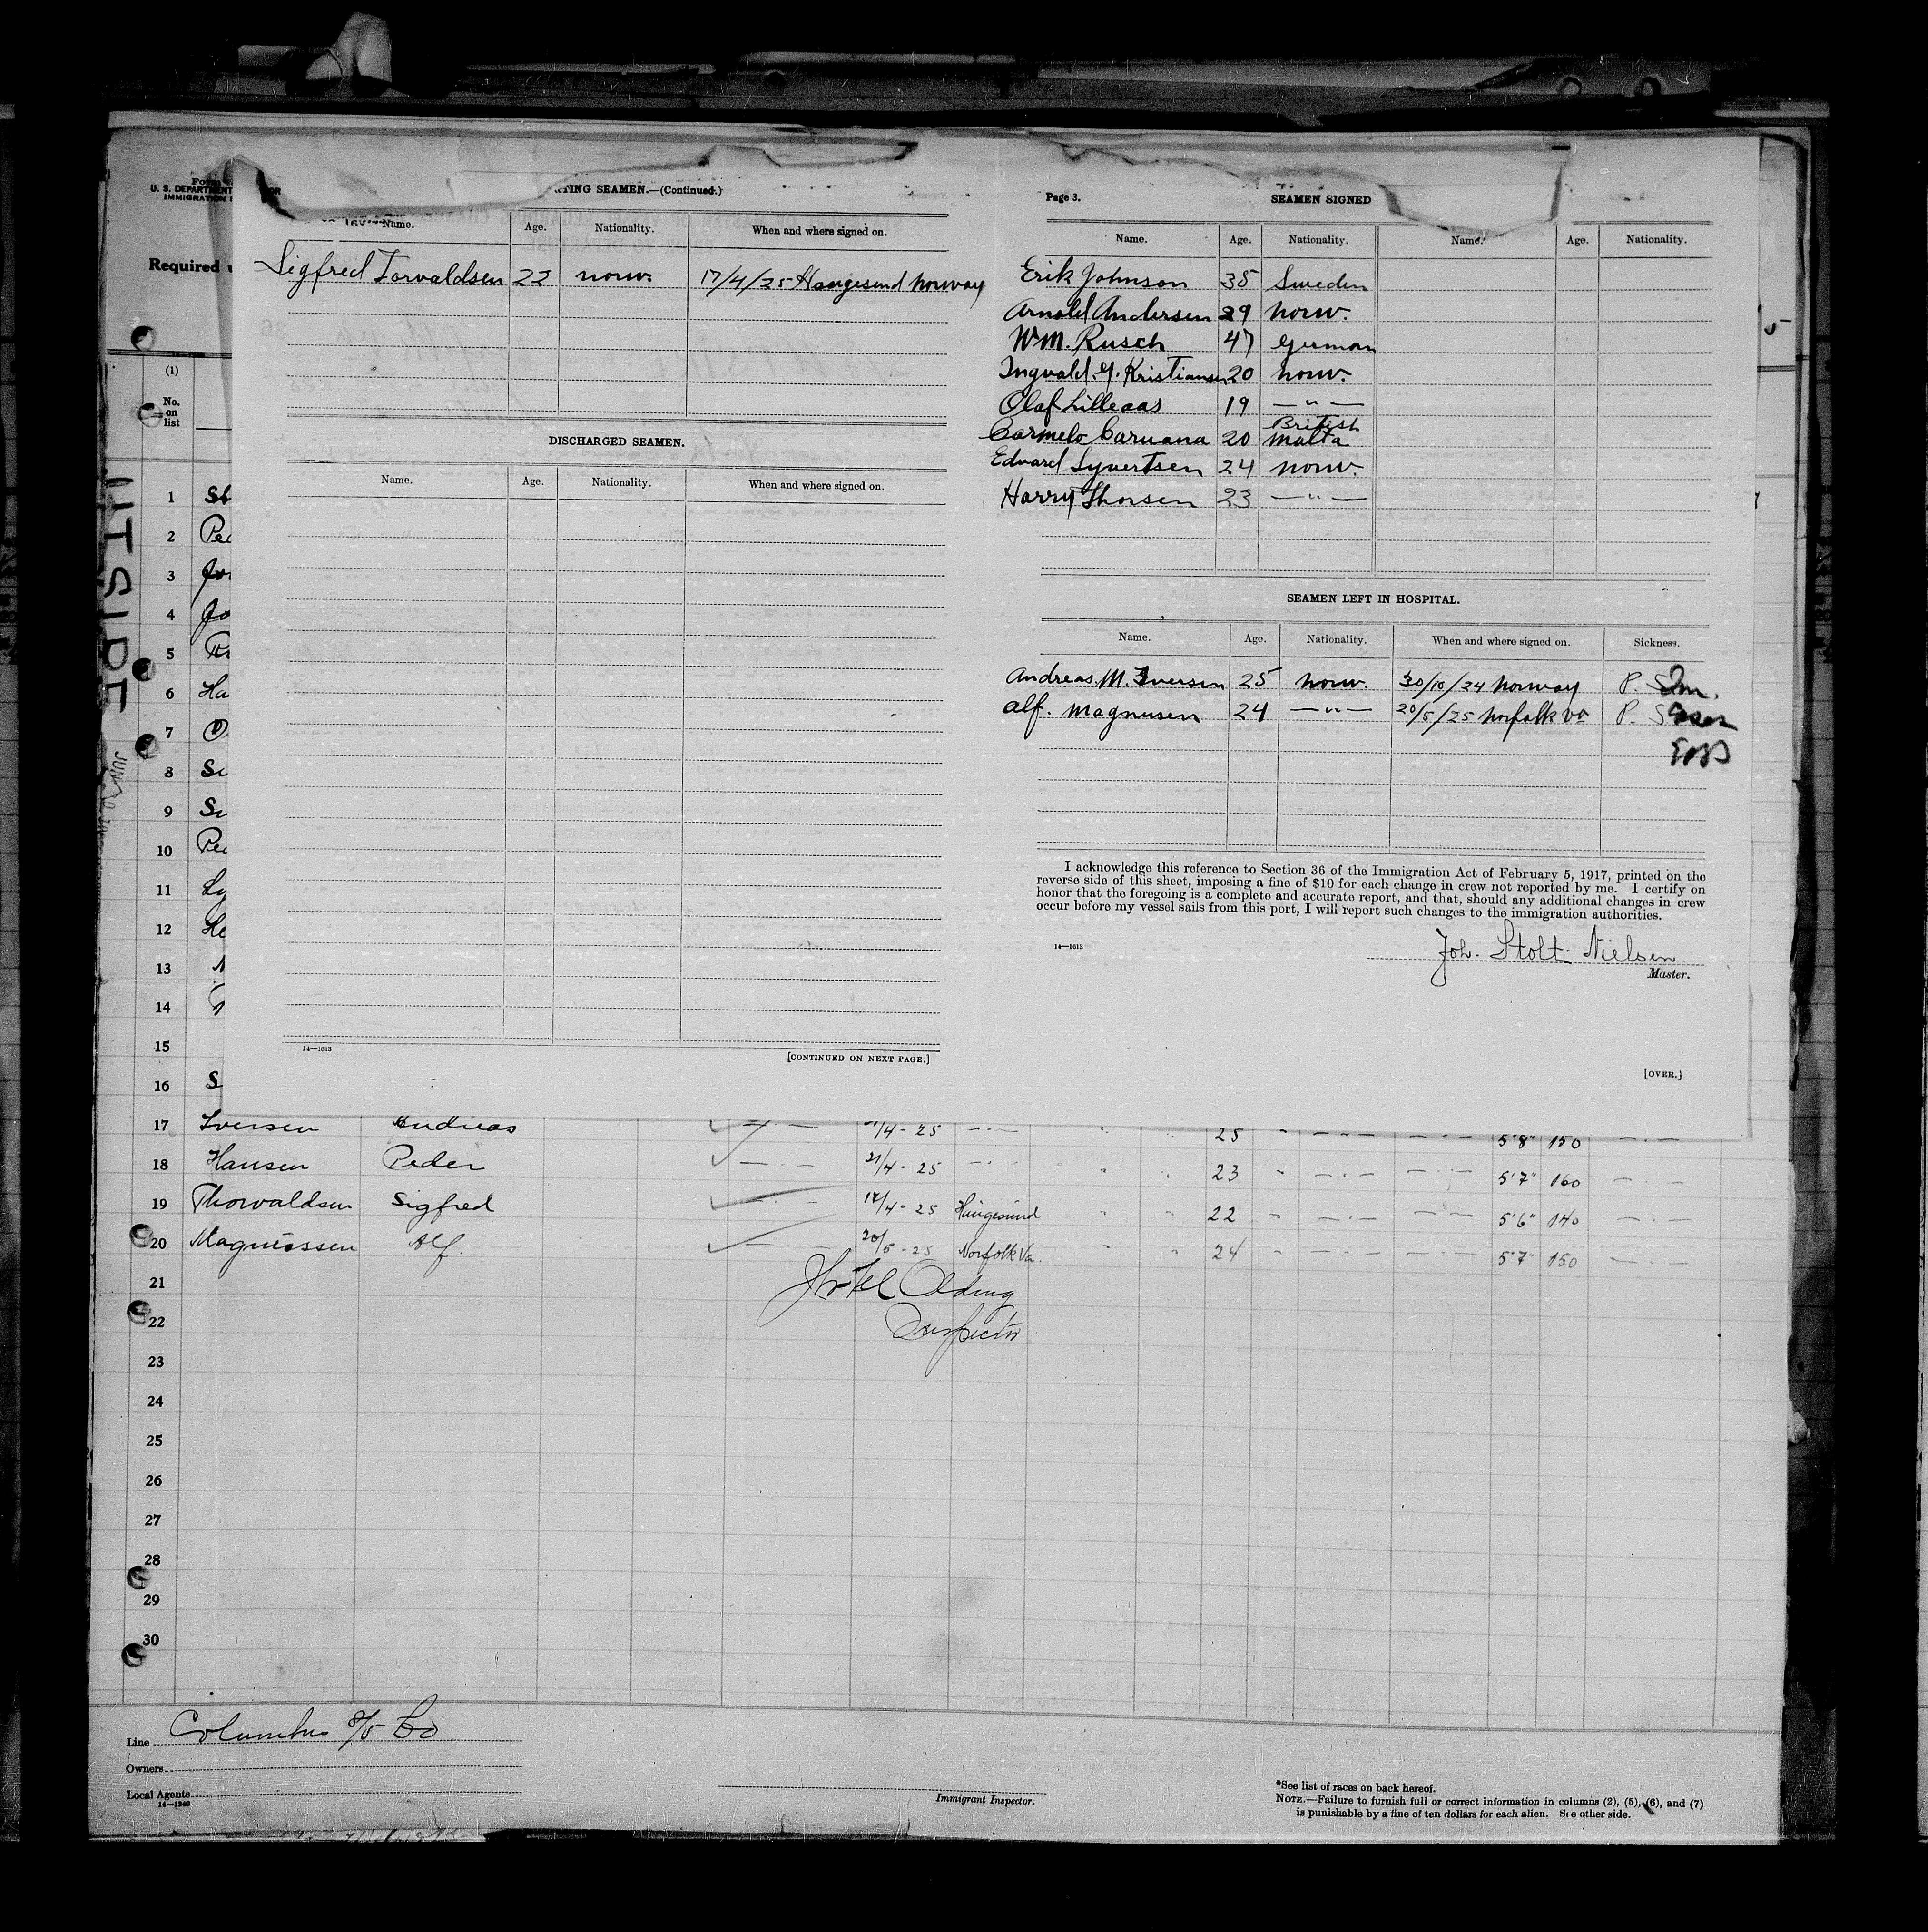 U. S. DEPARTMENT
IMMIGRATION
Required
(1)
No.
on
list
RTING SEAMEN.—(Continued.)
Name. Age. Nationality. When and where signed on.
Sigfred Torvaldsen 22 norw. 17/4/25 Haugesund norway
DISCHARGED SEAMEN.
Name. Age. Nationality. When and where signed on.
14—1613
[CONTINUED ON NEXT PAGE.]
Page 3.
SEAMEN SIGNED
Name. Age. Nationality. Name. Age. Nationality.
Erik Johnson 35 Sweden
Arnold Andersen 29 norw.
Wm. Rusch 47 german
Ingvald. Y. Kristiansen 20 norw.
Olaf Lilleaas 19 — " —
British
Carmelo Caruana 20 malta
Edvard Syvertsen 24 norw.
Harry Thorsen 23 — " —
SEAMEN LEFT IN HOSPITAL.
Name. Age. Nationality. When and where signed on. Sickness.
Andreas. M. Iversen 25 norw. 30/10/24 norway P.
Alf. Magnusen 24 — " — 20/5/25 norfolk va P.
I acknowledge this reference to Section 36 of the Immigration Act of February 5, 1917, printed on the
reverse side of this sheet, imposing a fine of $10 for each change in crew not reported by me. I certify on
honor that the foregoing is a complete and accurate report, and that, should any additional changes in crew
occur before my vessel sails from this port, I will report such changes to the immigration authorities.
14—1613
Joh. Stolt Nielsen
Master.
[OVER.]
1
2
3
4
5
6 Ha
7
8
9
10
11
12
13
14
15
16 S
17 Iversen Andreas 21/4 - 25 25 5'8" 150
18 Hansen Peder 21/4 - 25 23 5'7" 160
19 Thorvaldsen Sigfred 17/4 - 25 Haugesund 22 5'6" 140
20 Magnussen Alf. 20/5 - 25 Norfolk Va. 24 5'7" 150
21
22 Inspector
23
24
25
26
27
28
29
30
Line Columbus S/S Co
Owners
Local Agents
14—1240
Immigrant Inspector.
*See list of races on back hereof.
NOTE.—Failure to furnish full or correct information in columns (2), (5), (6), and (7)
is punishable by a fine of ten dollars for each alien. See other side.